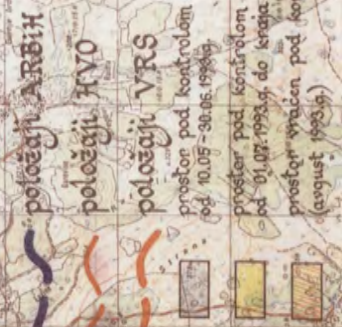 položaji ARBiH
položaji HVO
položaji VRS
prostor pod kontrolom
od 10.05.-30.06.1993.g.
prostor pod kontrolom
od 01.07.1993.g. do kraja
prostor vraćen pod
(avgust 1993.g.)